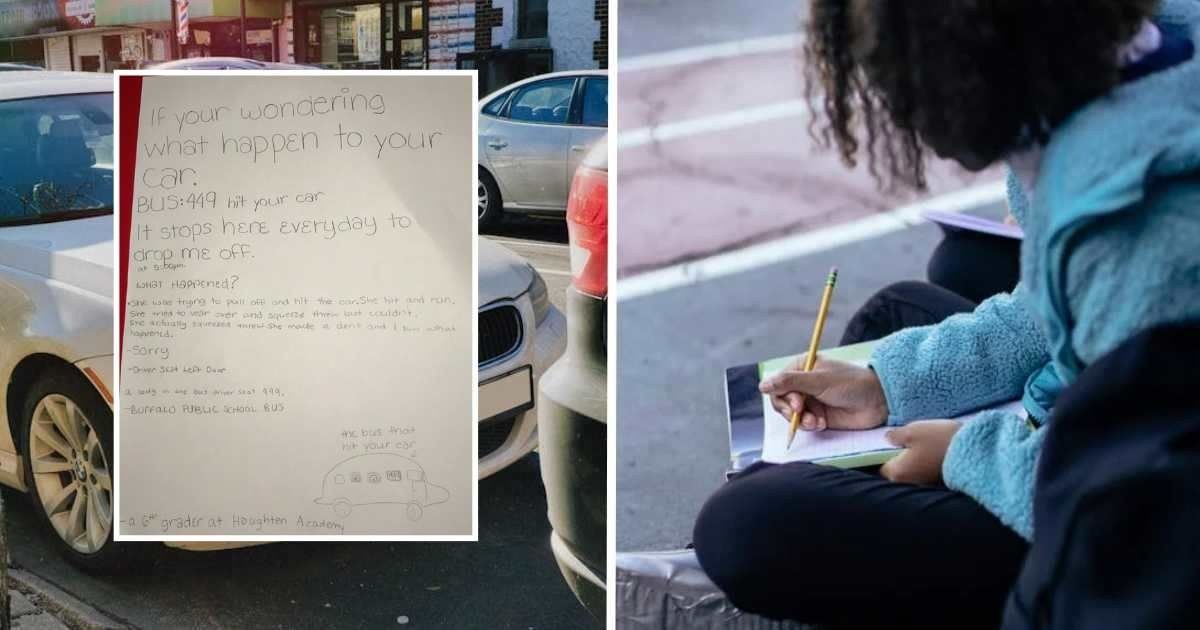 If your wondering
what happen to your
car.
BUS:449 hit your car
It stops here everyday to
drop me off.
at 5:00pm
WHAT HAPPENED?
•She was trying to pull off and hit the car. She hit and run.
She tried to vear over and squeeze threw but couldn't.
She actually squeezed threw. She made a dent and I saw what
happened.
-Sorry
-Driver Seat Left Door
a lady in the bus driver seat 449.
-BUFFALO PUBLIC SCHOOL BUS
the bus that
hit your car
-a 6th grader at Houghten Academy